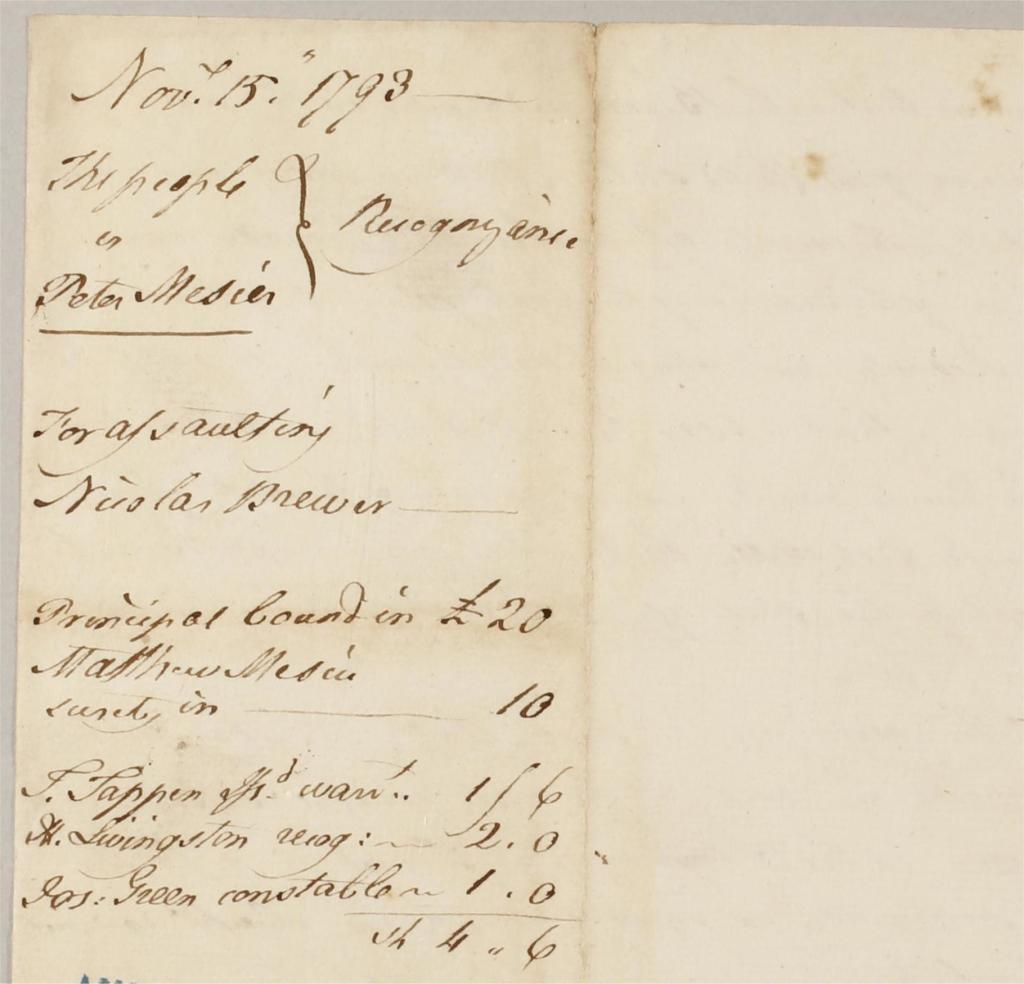 Novr. 15. 1793
The people
vs
Peter Mesier
Recognizance
For assaulting
Nicolas Brewer
Principal bound in £20
Matthew Mesier
surety in 10
T. Tappen Issd warrt. 1/6
H. Livingston recog: 2.0
Jas: Green constable 1.0
sh 4 " 6